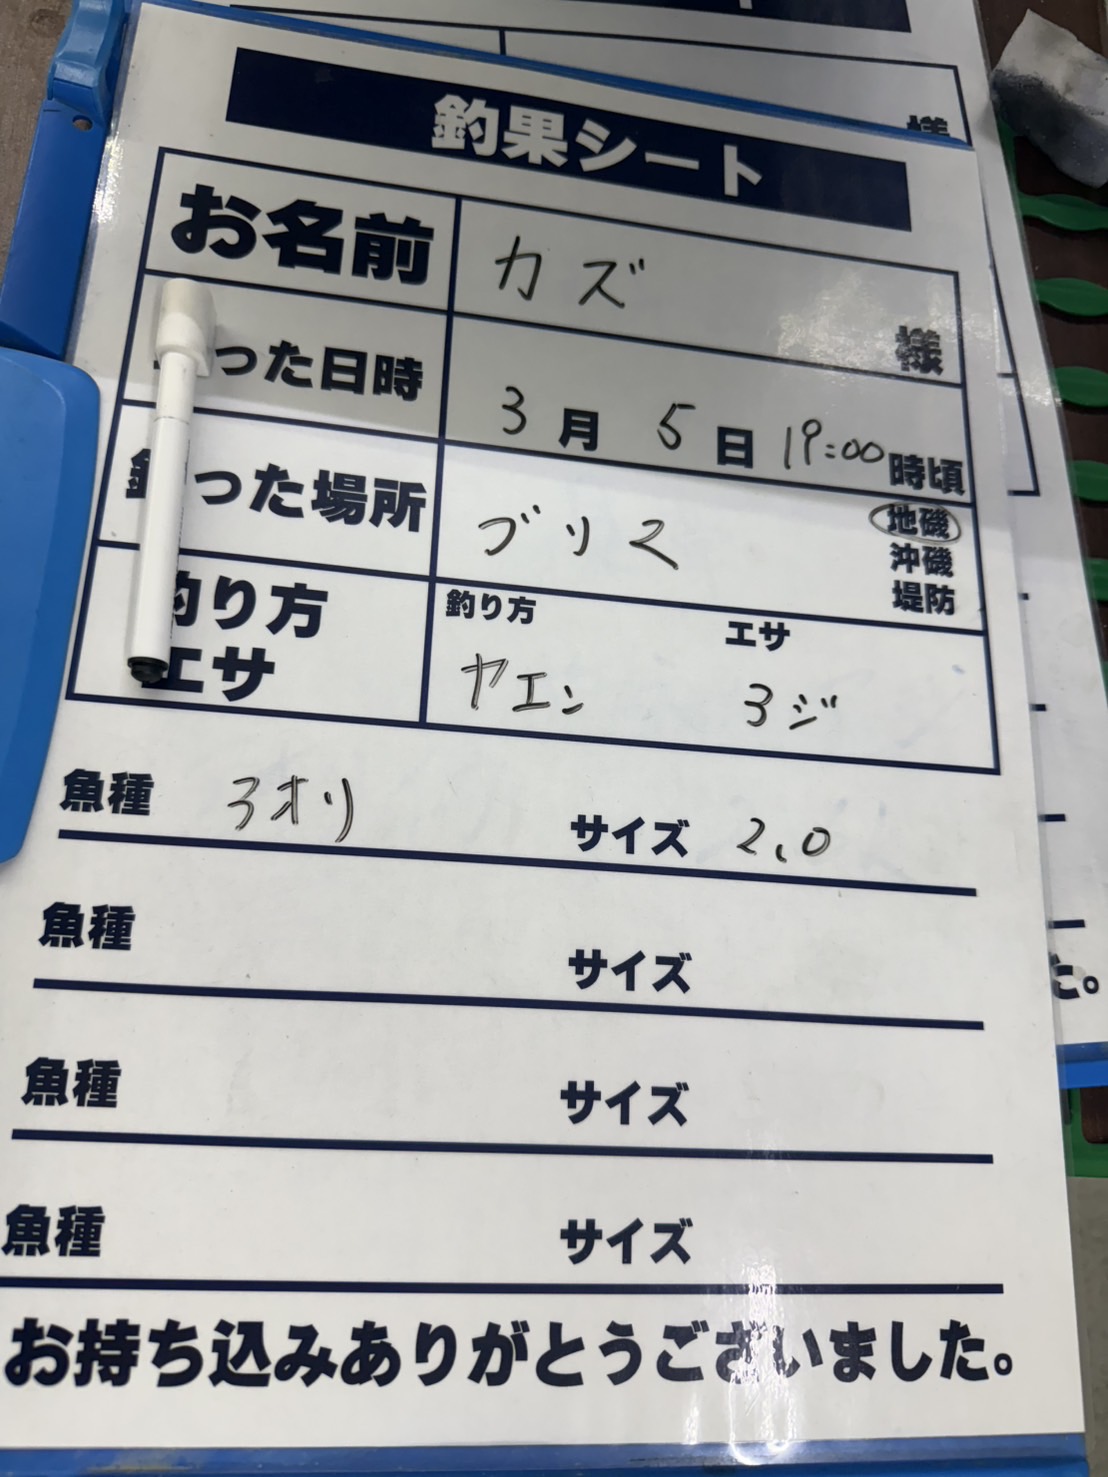 釣果シート
お名前 カズ 様
った日時 3月5日 19:00時頃
釣った場所 ブリマ 地磯
沖磯
堤防
釣り方 釣り方 エサ
エサ ヤエン ヨジ
魚種 ヨオリ サイズ 2.0
魚種 サイズ
魚種 サイズ
魚種 サイズ
お持ち込みありがとうございました。
様
た。